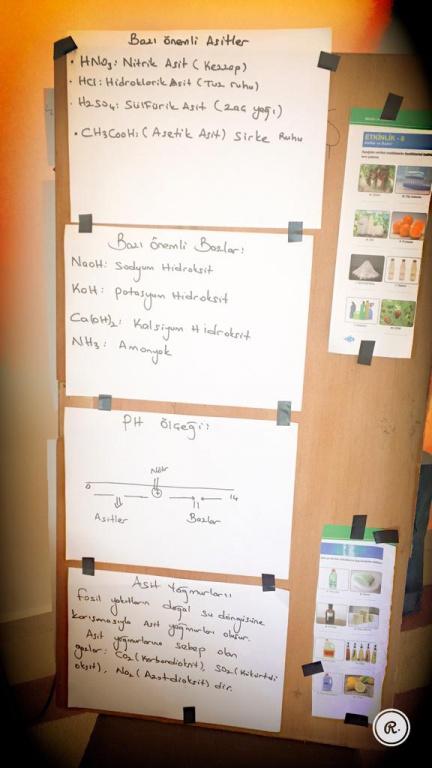 Bazı önemli Asitler
• HNO3: Nitrik Asit (Kezzap)
• HCl: Hidroklorik Asit (Tuz ruhu)
• H2SO4: Sülfürik Asit (zaç yağı)
• CH3COOH: (Asetik Asit) Sirke Ruhu
Bazı önemli Bazlar:
NaOH: Sodyum Hidroksit
KOH: potasyum Hidroksit
Ca(OH)2: Kalsiyum Hidroksit
NH3: Amonyak
PH ölçeği:
Nötr
0 14
Asitler Bazlar
Asit Yağmurları
Fosil yakıtların doğal su döngüsüne
karışmasıyla Asit yağmurları oluşur.
Asit yağmurlarına sebep olan
gazlar: CO2 (Karbondioksit), SO2 (Kükürtdi
oksit), NO2 (Azotdioksit) dir.
ETKİNLİK - 8
R.